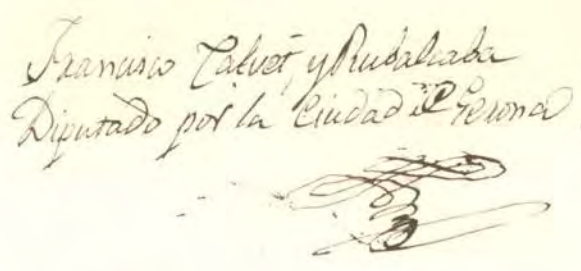 Francisco Calvet, y Rubalcaba
Diputado por la Ciudad de Gerona